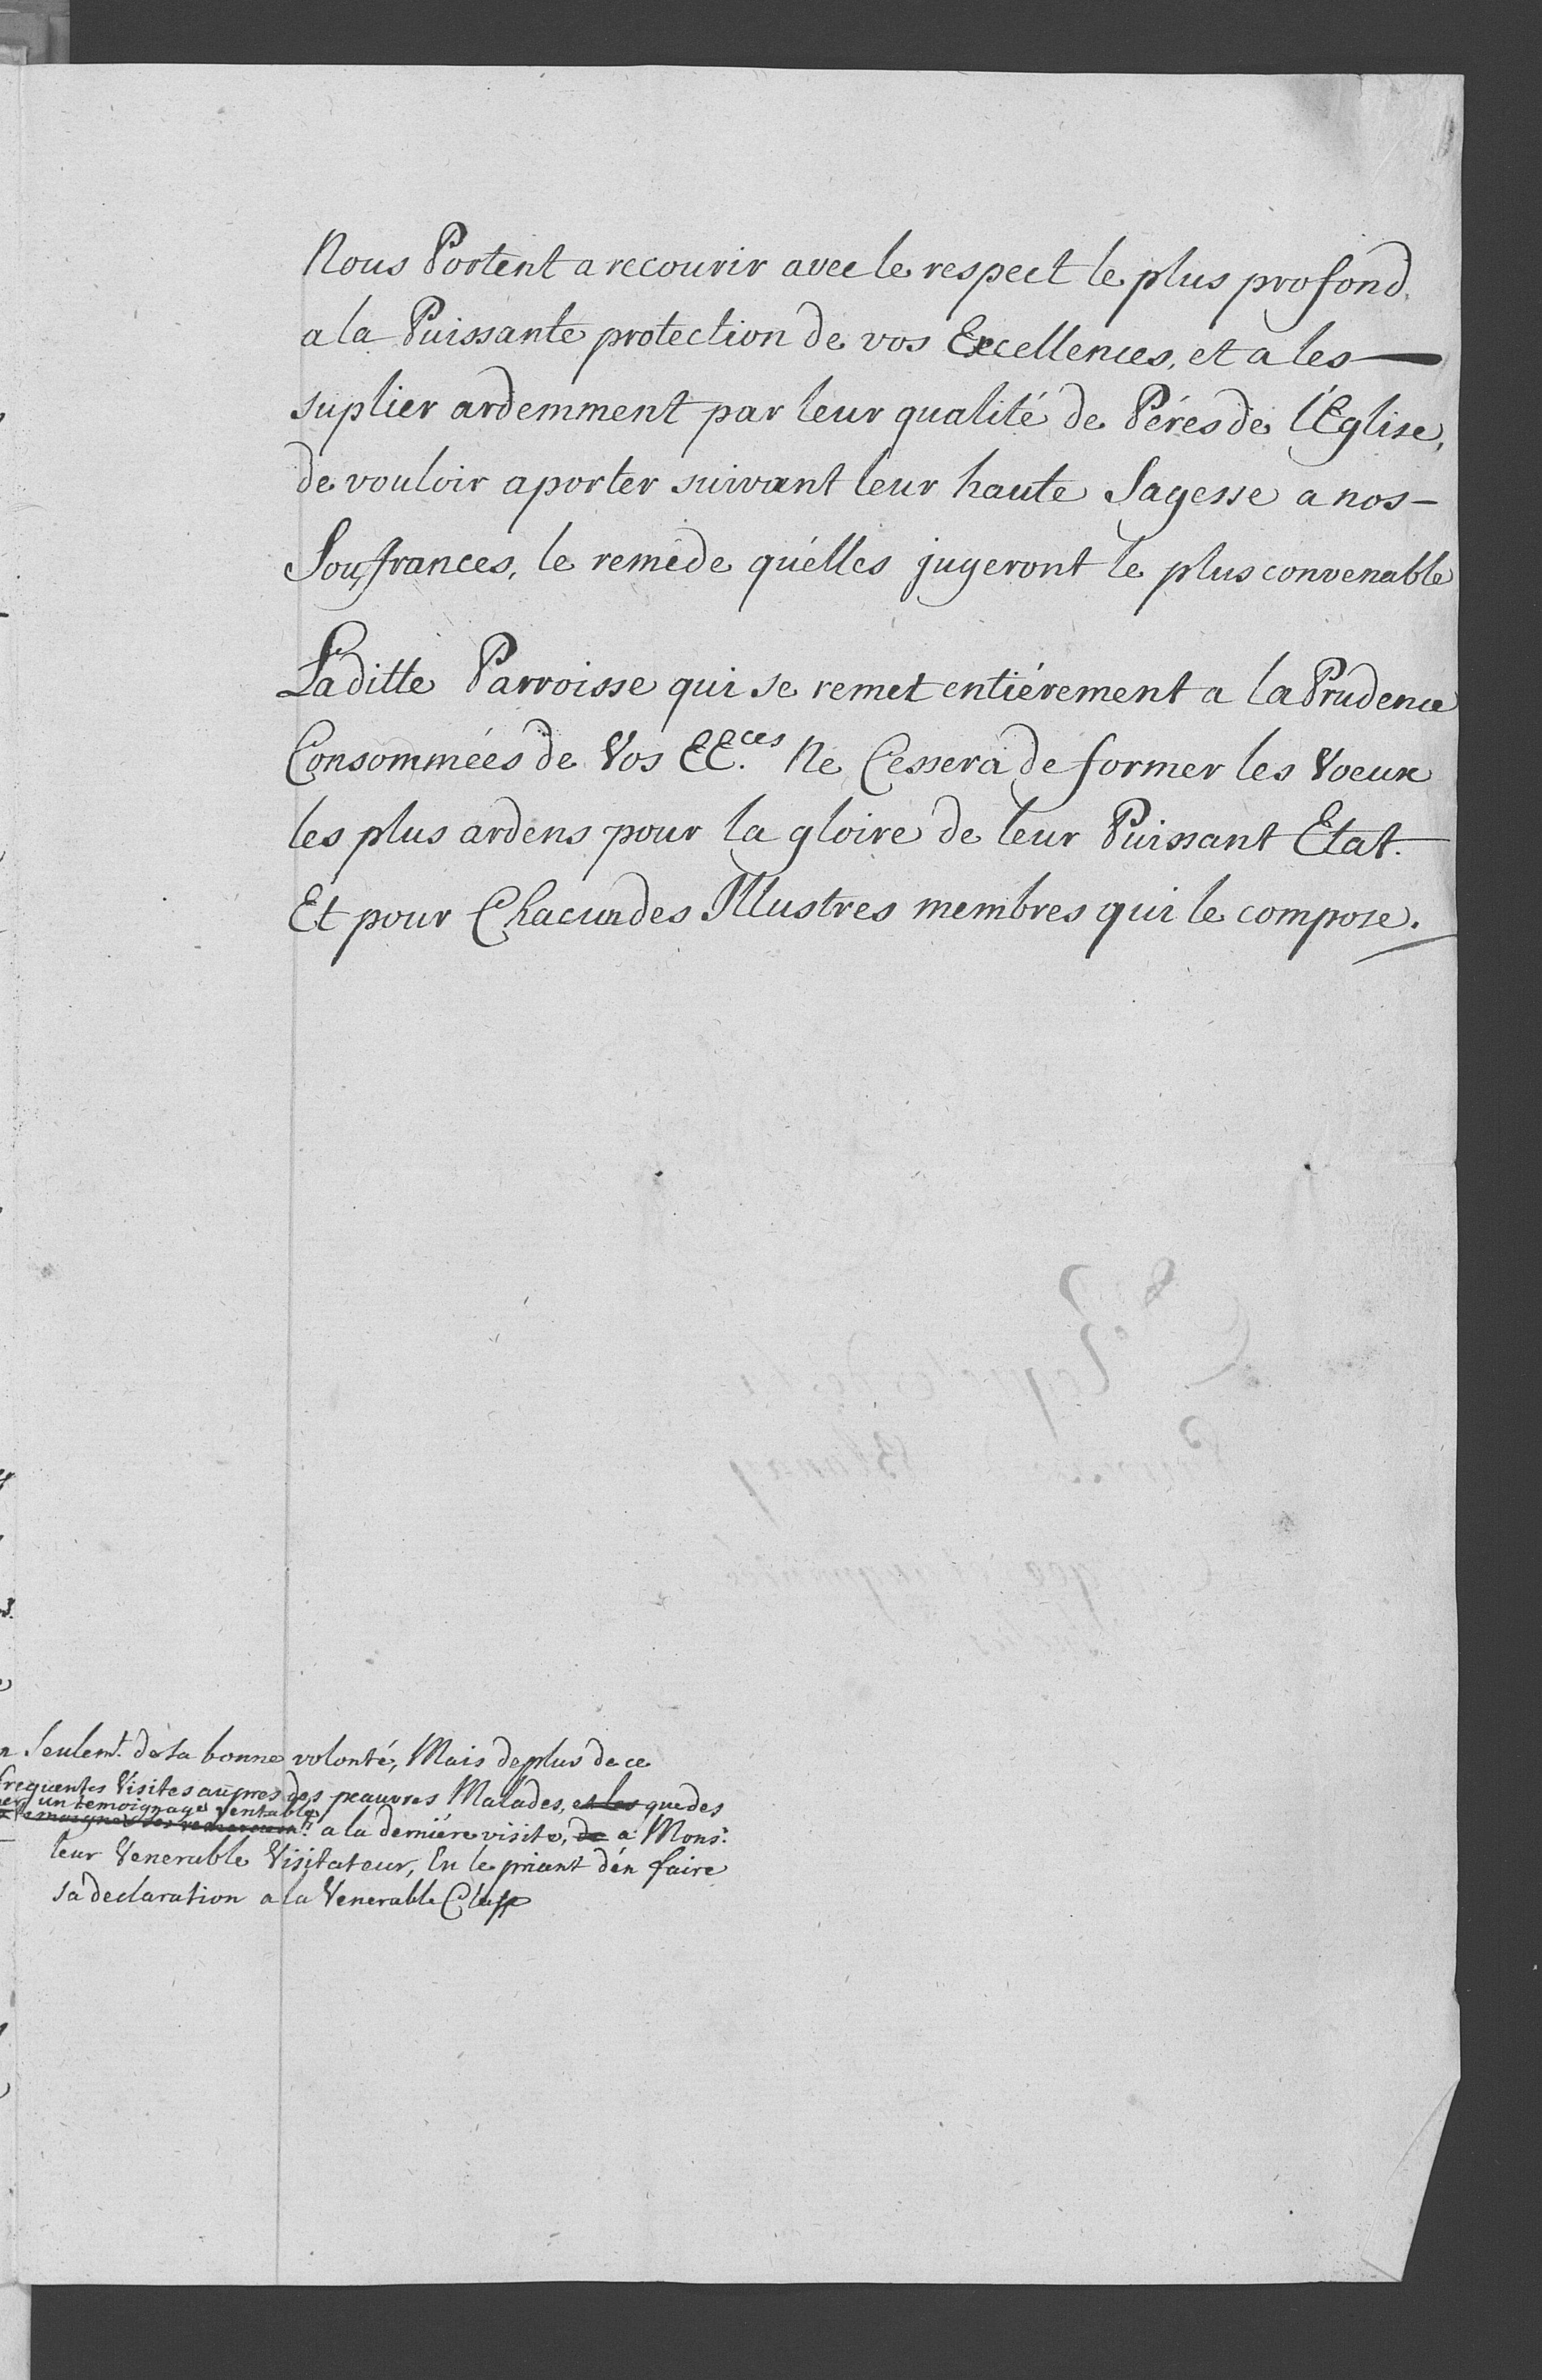 Nous Portent a recourir avec le respect le plus profond,
a la Puissante protection de vos Excellences, et a les —
suplier ardemment par leur qualité de Péres de l'Eglise,
de vouloir aporter suivant leur haute Sagesse a nos —
Souffrances, le remède qu'elles jugeront le plus convenable
Laditte Parroisse qui se remet entiérement a la Prudence
Consommées de Vos EE.ces Ne Cessera de former les Voeux
les plus ardens pour la gloire de leur Puissant Etat.
Et pour Chacun des Illustres membres qui le compose.
Seulemt. de sa bonne volonté, Mais de plus de ce
frequentes Visites aupres des peauvres Malades, et les que des
un temoignage veritable
a la derniére visite, de a Monsr.
leur Venerable Visitateur, En le priant d'en faire
sa declaration a la Venerable Classe